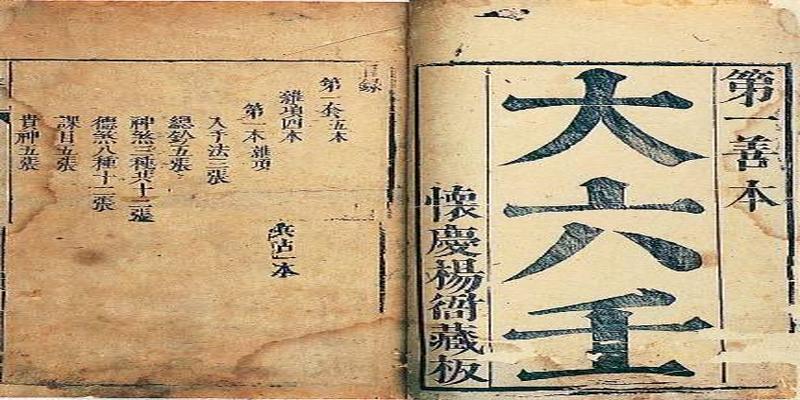 第一善本
大六壬
懷慶楊衙藏板
錄
第一套五本
雜項四本
第一本雜項
占一本
入手法三張
總鈐五張
神煞三種共十二張
德煞八種十二張
課目五張
貴神五張